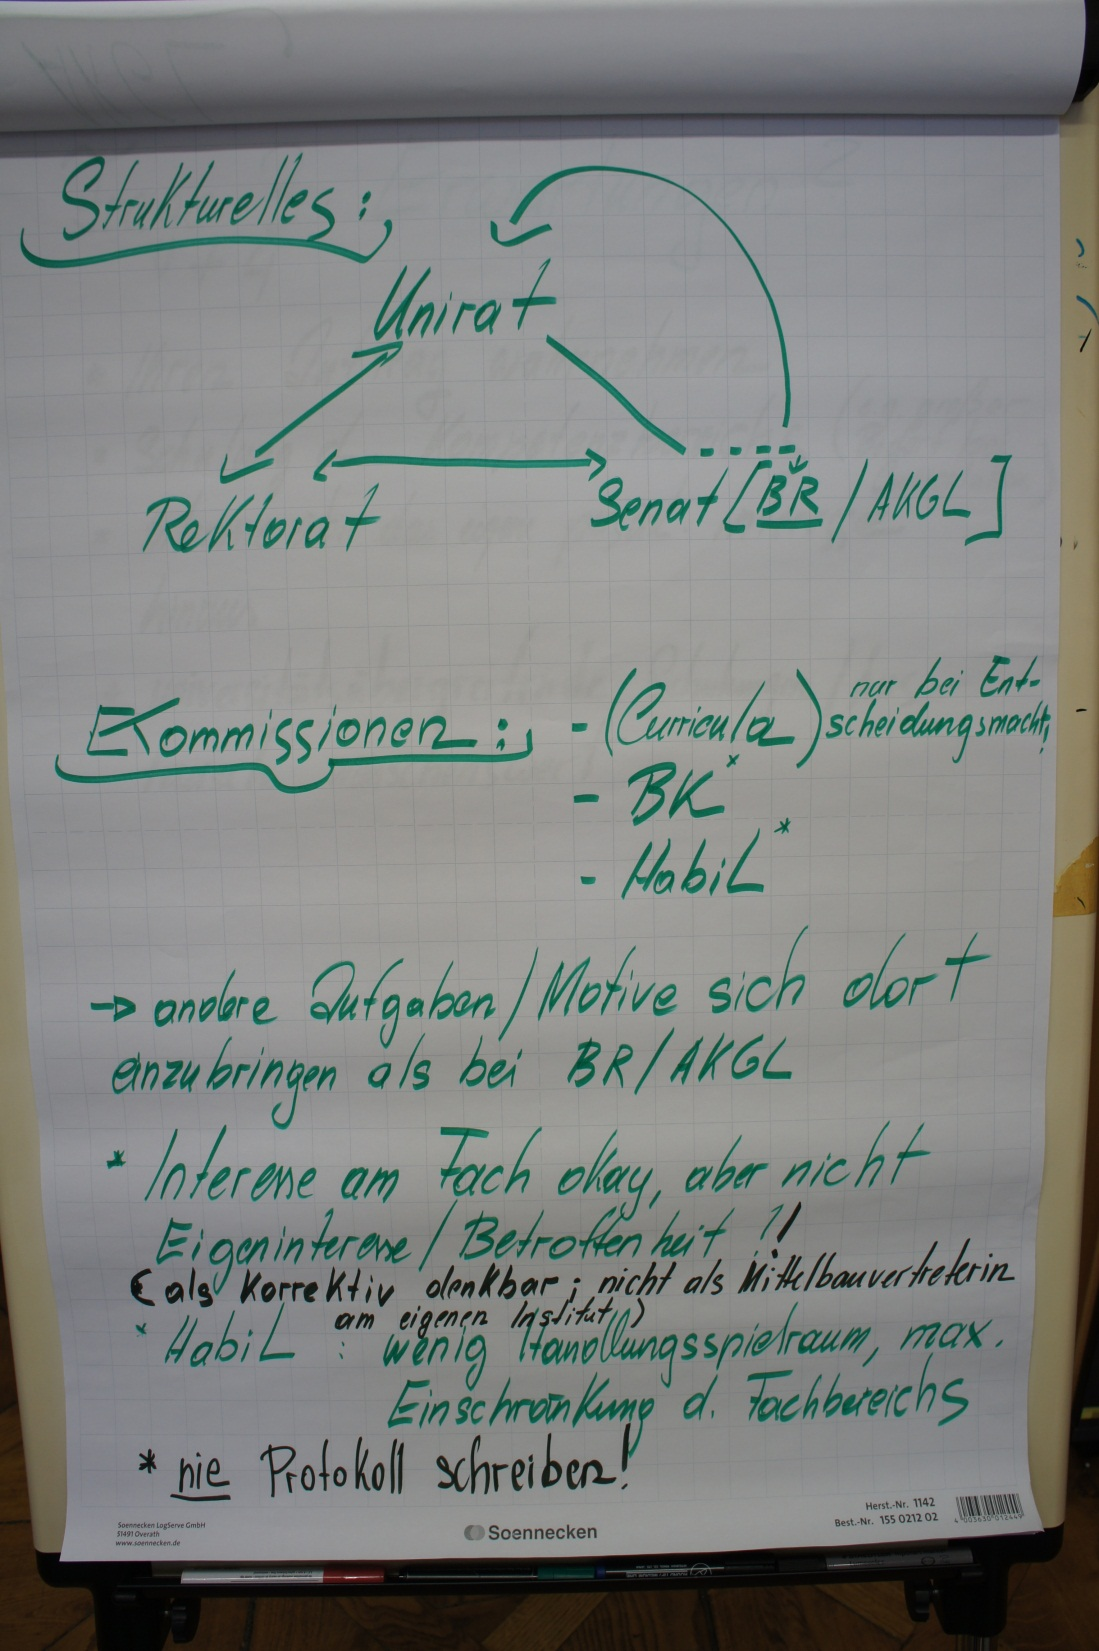 Strukturelles:
Unirat
Rektorat
Senat [BR / AKGL]
Kommissionen:
- (Curricula) nur bei Ent-
scheidungsmacht!
- BK*
- Habil*
→ andere Aufgaben / Motive sich dort
anzubringen als bei BR / AKGL
* Interesse am Fach okay, aber nicht
Eigeninteresse / Betroffenheit !!
(als Korrektiv denkbar; nicht als Mittelbauvertreterin
am eigenen Institut)
* Habil : wenig Handlungsspielraum, max.
Einschränkung d. Fachbereichs
* nie Protokoll schreiben!
Soennecken LogServe GmbH
51491 Overath
www.soennecken.de
Soennecken
Herst.-Nr. 1142
Best.-Nr. 155 0212 02
4 003630 012449